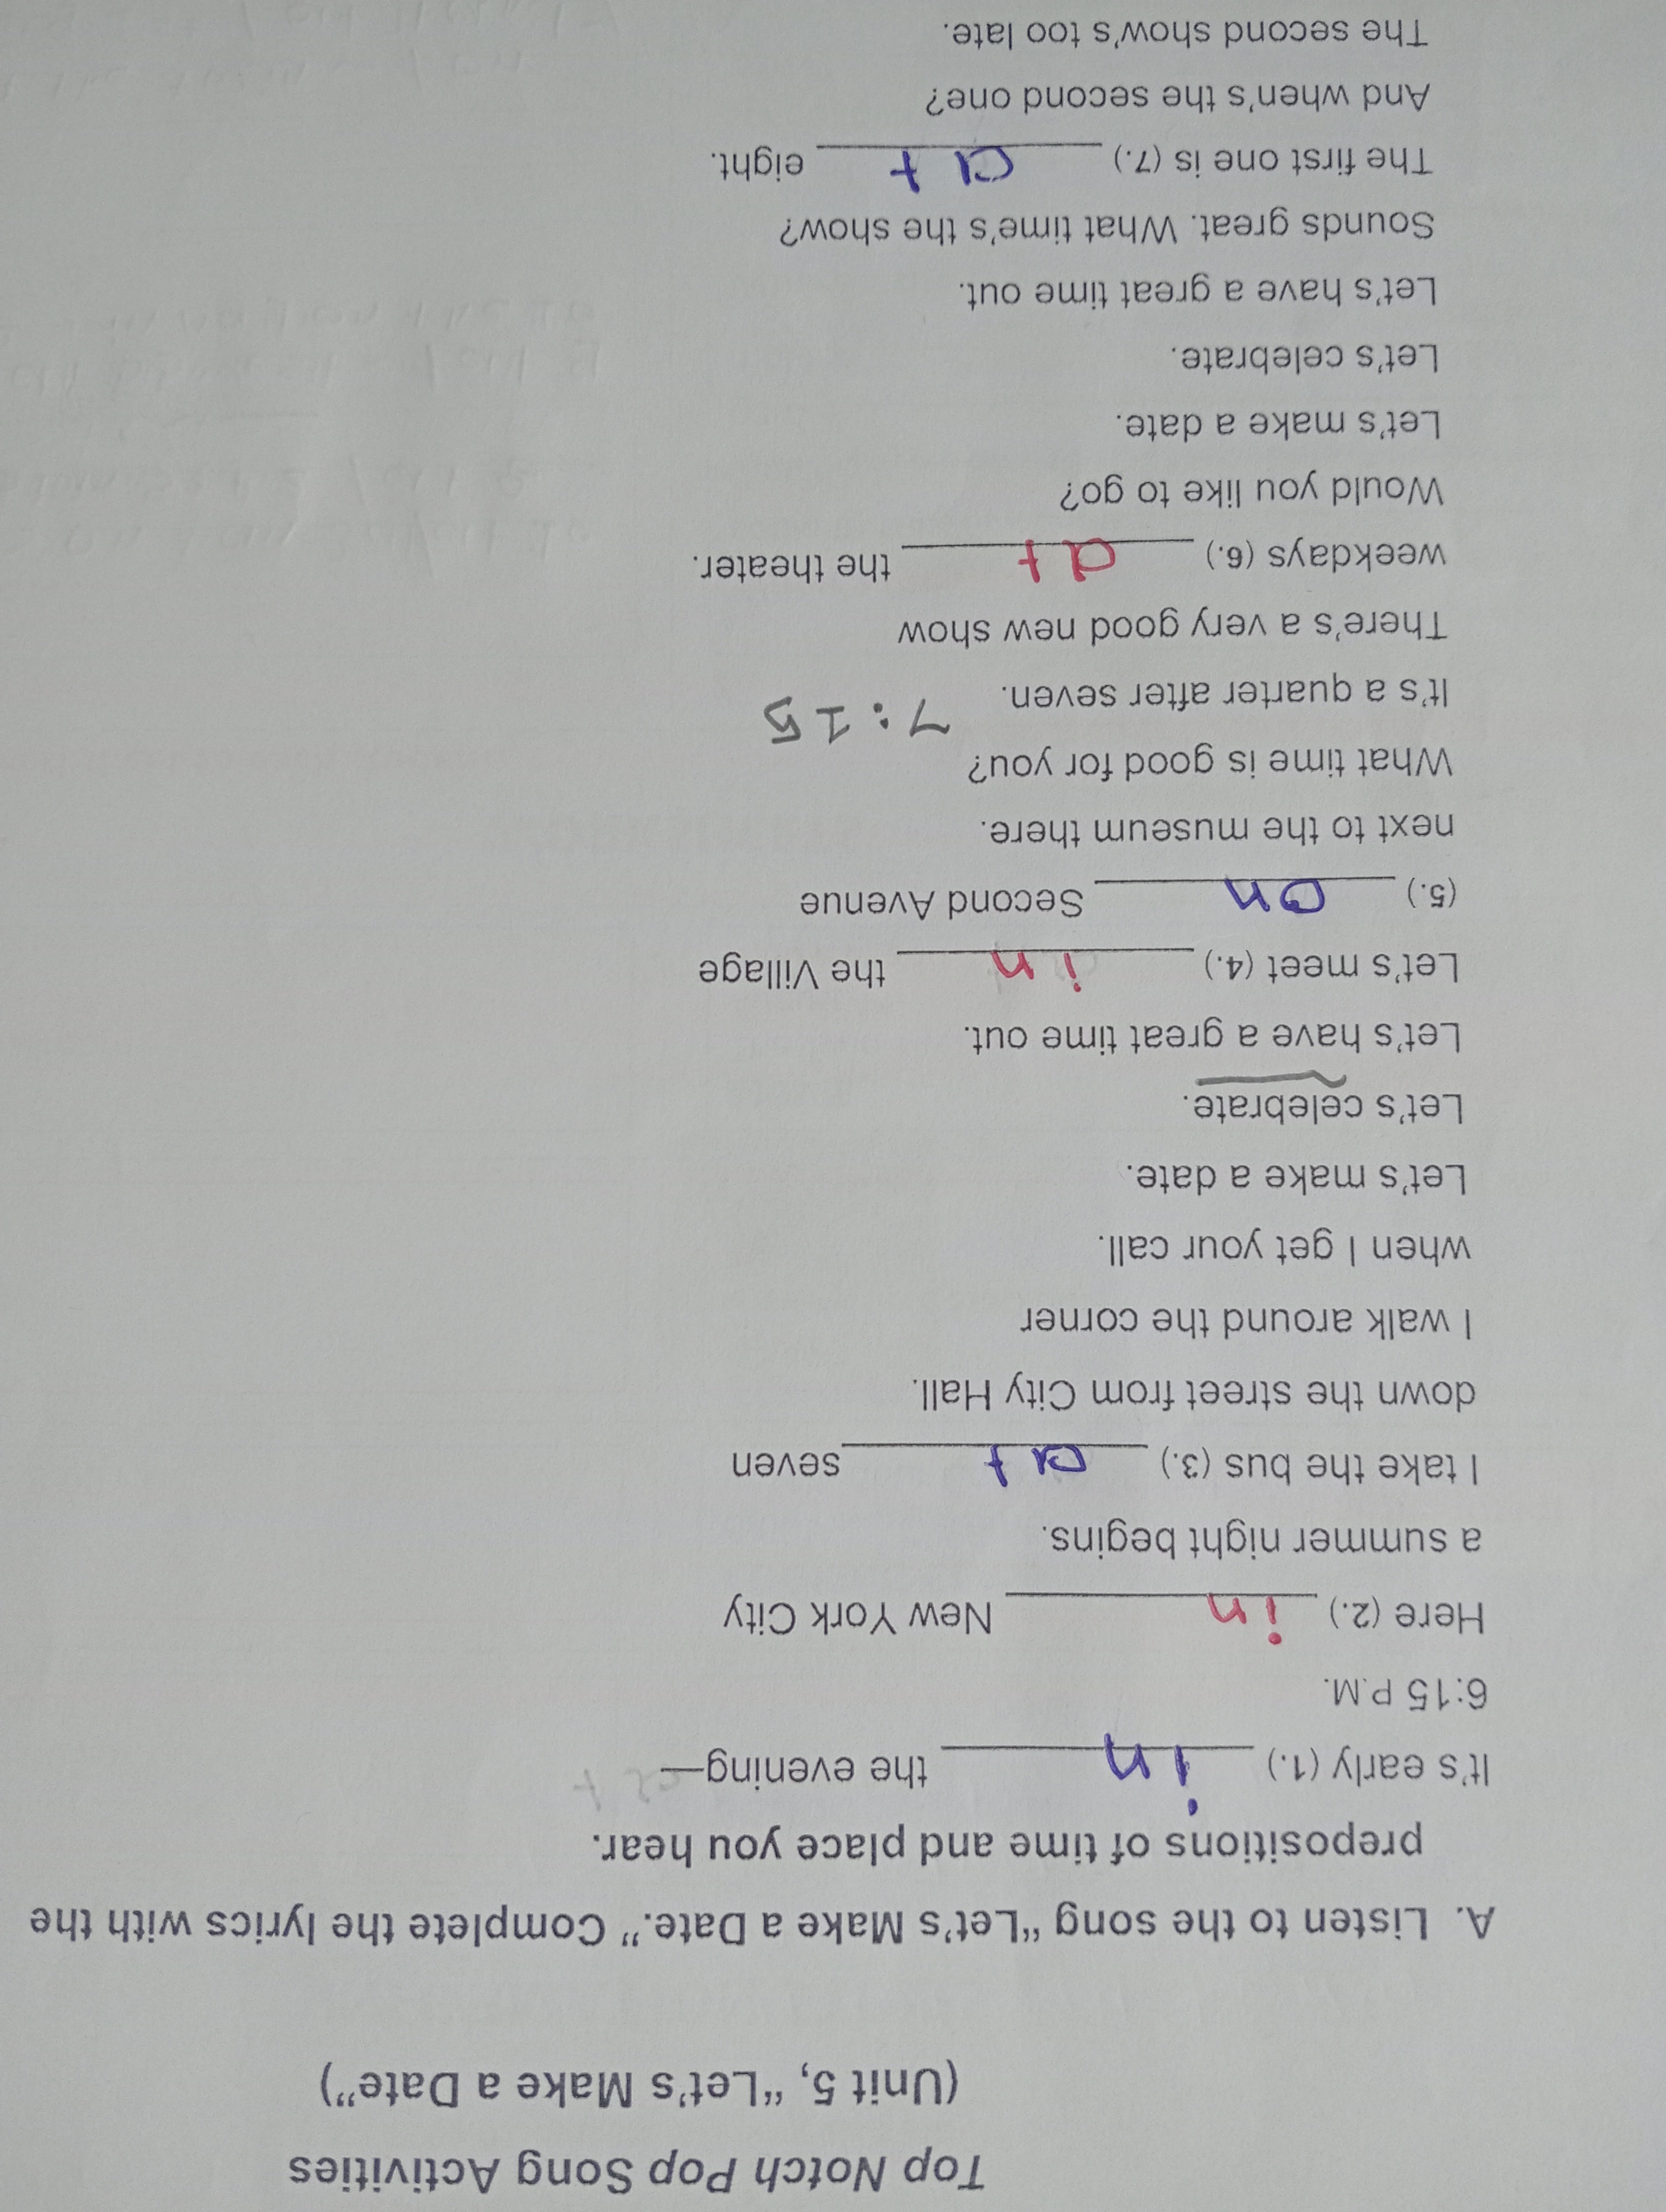 Top Notch Pop Song Activities
(Unit 5, “Let’s Make a Date”)
A. Listen to the song “Let’s Make a Date.” Complete the lyrics with the
prepositions of time and place you hear.
It’s early (1.) in the evening—
6:15 P.M.
Here (2.) in New York City
a summer night begins.
I take the bus (3.) at seven
down the street from City Hall.
I walk around the corner
when I get your call.
Let’s make a date.
Let’s celebrate.
Let’s have a great time out.
Let’s meet (4.) in the Village
(5.) on Second Avenue
next to the museum there.
What time is good for you?
It’s a quarter after seven. 7:15
There’s a very good new show
weekdays (6.) at the theater.
Would you like to go?
Let’s make a date.
Let’s celebrate.
Let’s have a great time out.
Sounds great. What time’s the show?
The first one is (7.) at eight.
And when’s the second one?
The second show’s too late.